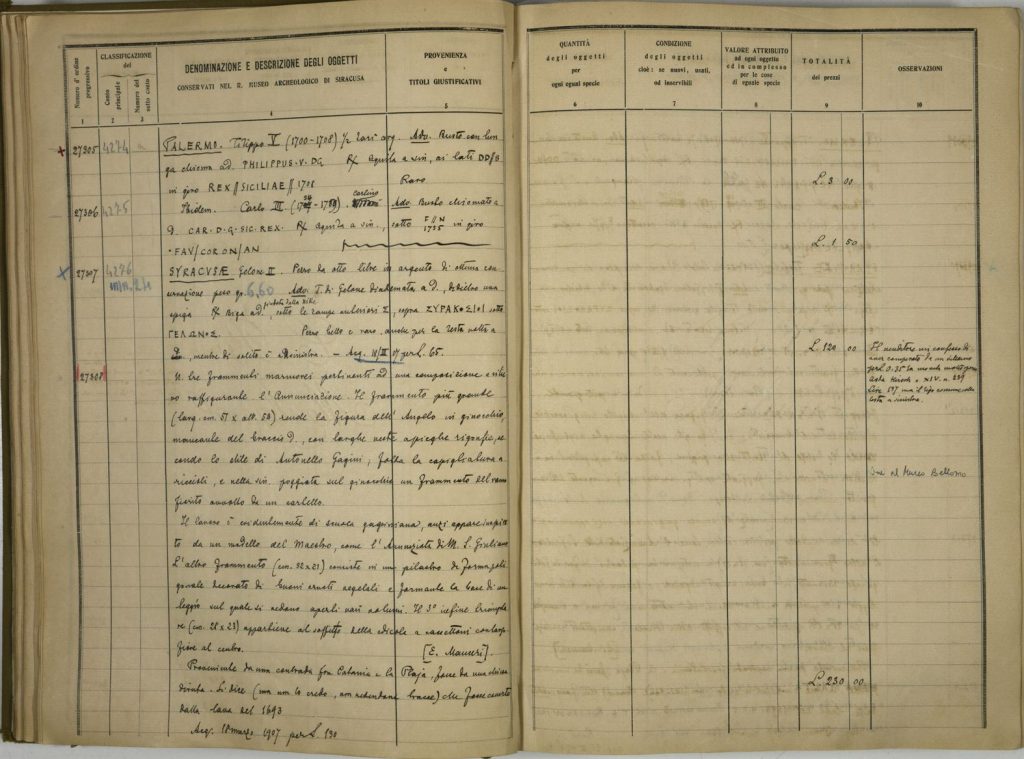 Numero d'ordine progressivo
CLASSIFICAZIONE del
Conto principale
Numero del sotto conto
DENOMINAZIONE E DESCRIZIONE DEGLI OGGETTI
CONSERVATI NEL R. MUSEO ARCHEOLOGICO DI SIRACUSA
PROVENIENZA
e
TITOLI GIUSTIFICATIVI
1 2 3 4 5
27305 4274 PALERMO. Filippo V (1700-1708) 1/2 Tarì arg. Adv. Busto con lun
ga chioma a d. PHILIPPUS·V·DG R/ Aquila a sin., ai lati DD/
in giro REX//SICILIAE//1708 Raro
27306 4275 Ibidem. Carlo III carlino Adv. Busto chiomato a
d. CAR·D·G·SIC·REX· R/ aquila a sin., sotto 1735 in giro
·FAV/CORON/AN
27307 4276 SYRACUSÆ Gelone II. Pezzo da otto litre in argento di ottima con
servazione peso gr. 6,60 Adv: T. di Gelone diademata a d., dietro una
spiga R/ Biga a d., guidata dalla Nike, sotto le zampe anteriori Σ, sopra ΣΥΡΑΚ•ΣΙ•Ι sotto
ΓΕΛΩΝ•Σ. Pezzo bello e raro, anche per la testa volta a
D., mentre di solito è a sinistra. — Acq. 18/III 07 per L. 65.
27308 N. tre frammenti marmorei pertinenti ad una composizione a rilie
vo raffigurante l'Annunciazione. Il frammento più grande
(larg. cm. 57 x alt. 58) rende la figura dell'Angelo in ginocchio,
mancante del braccio d., con lunghe vesti a pieghe rigonfie, se
condo lo stile di Antonello Gagini; folta la capigliatura a
riccioli, e nella sin. poggiata sul ginocchio un frammento del ramo
fiorito avvolto da un cartello.
Il lavoro è evidentemente di scuola gaginiana, anzi appare inspira
to da un modello del Maestro, come l'Annunziata di M. S. Giuliano
L'altro frammento (cm. 32x21) consiste in un pilastro di forma poli
gonale decorato di buoni ornati vegetali e formante la base di un
leggio sul quale si vedono aperti vari volumi. Il 3° infine triangola
re (cm. 28 x 23) appartiene al soffitto della edicola a cassettoni con
fiore al centro. [E. Mauceri].
Proveniente da una contrada fra Catania e la Plaja, forse da una chiesa
diruta. Si dice (ma non lo credo, non vedendone tracce) che fosse coverta
dalla lava del 1693
Acq. 18 marzo 1907 per L. 130
QUANTITÀ
degli oggetti
per
ogni egual specie
CONDIZIONE
degli oggetti
cioè: se nuovi, usati,
od inservibili
VALORE ATTRIBUITO
ad ogni oggetto
ed in complesso
per le cose
di eguale specie
TOTALITÀ
dei prezzi
OSSERVAZIONI
6 7 8 9 10
L. 3 00
L. 1 50
L. 120 00
Il venditore mi confessò di
aver comprato da un
per L. 0.35 la moneta
Asta Hirsch XIV. n. 239
Lire 597 ma il tipo comune colla
testa a sinistra.
Ora al Museo Bellomo
L. 230 00